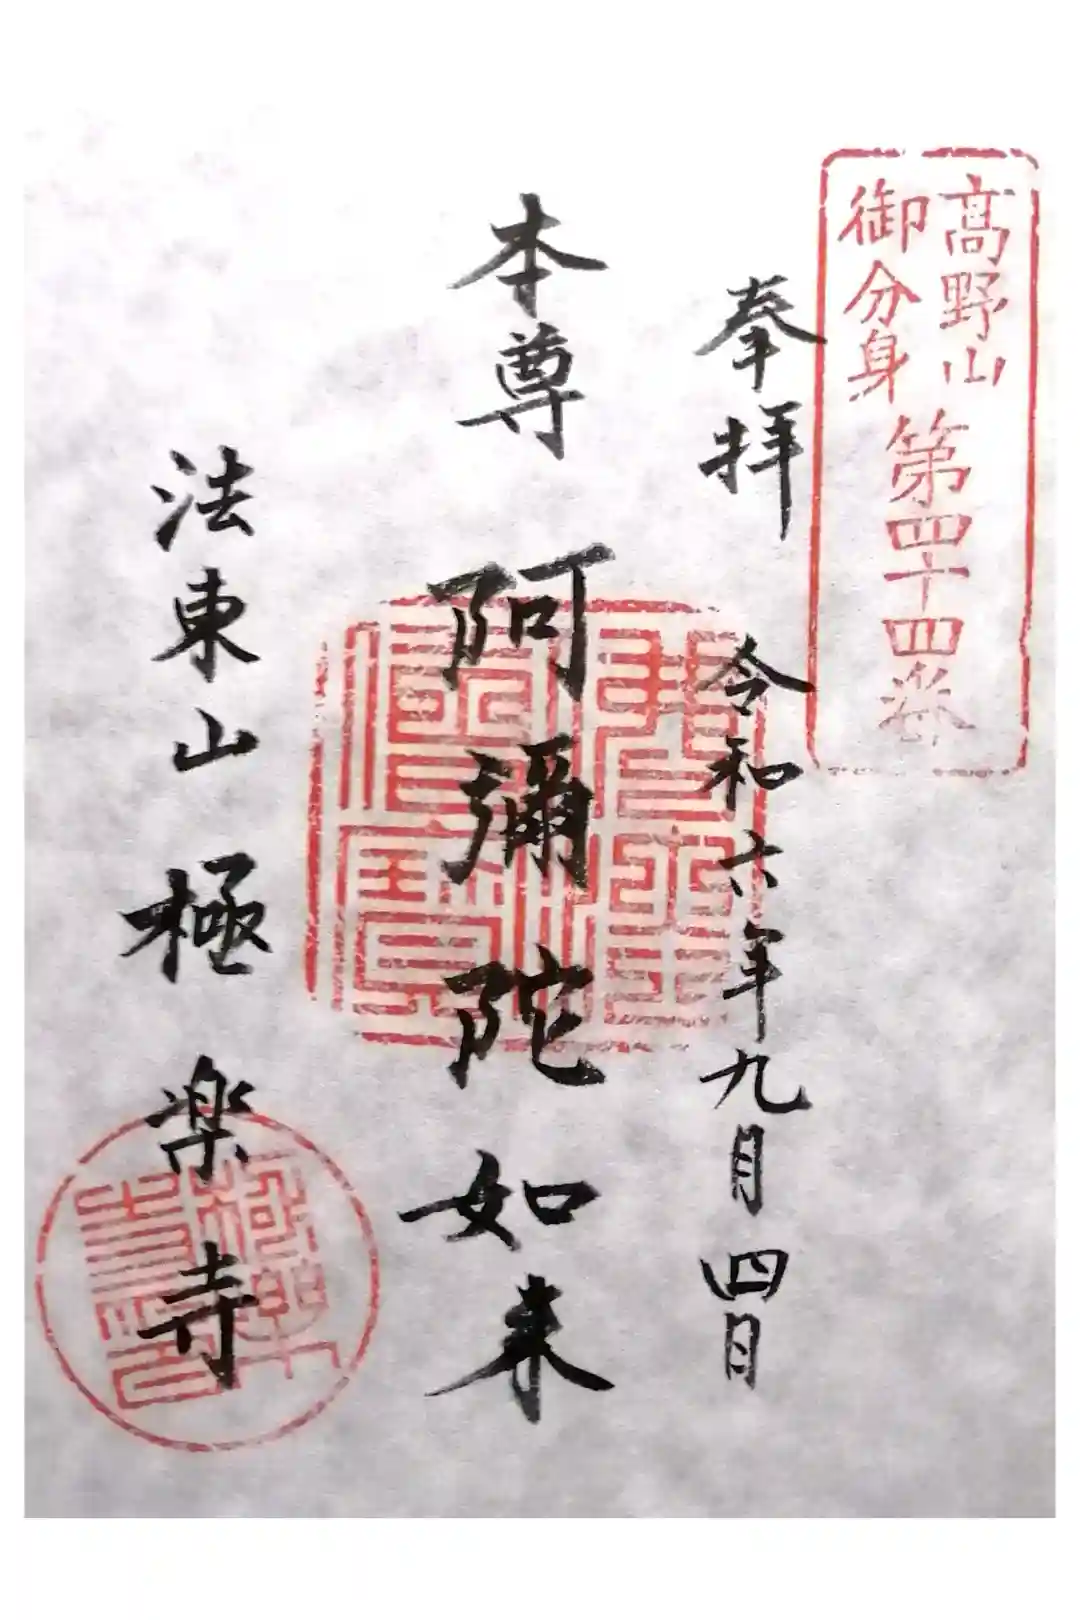 高野山
御分身
第四十四番
奉拝 令和六年九月四日
本尊 阿彌陀如来
法東山 極楽寺
佛法僧寶